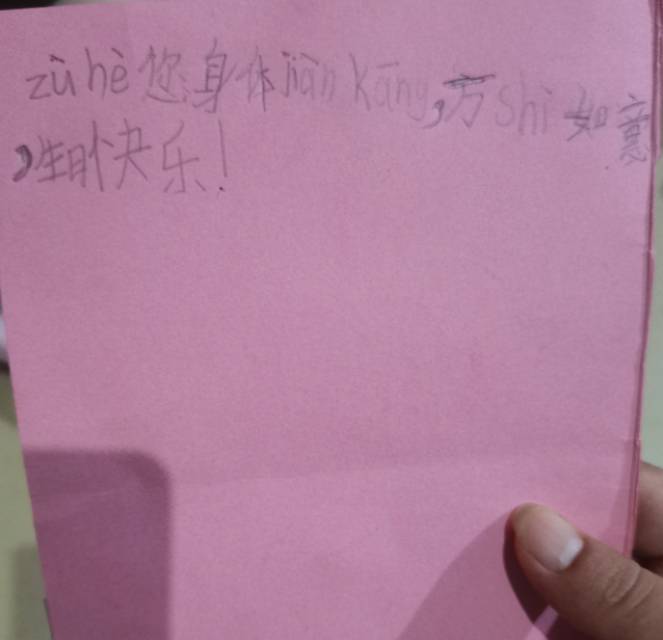 zù hè您身体jiàn kāng,万shì如意
,生日快乐!